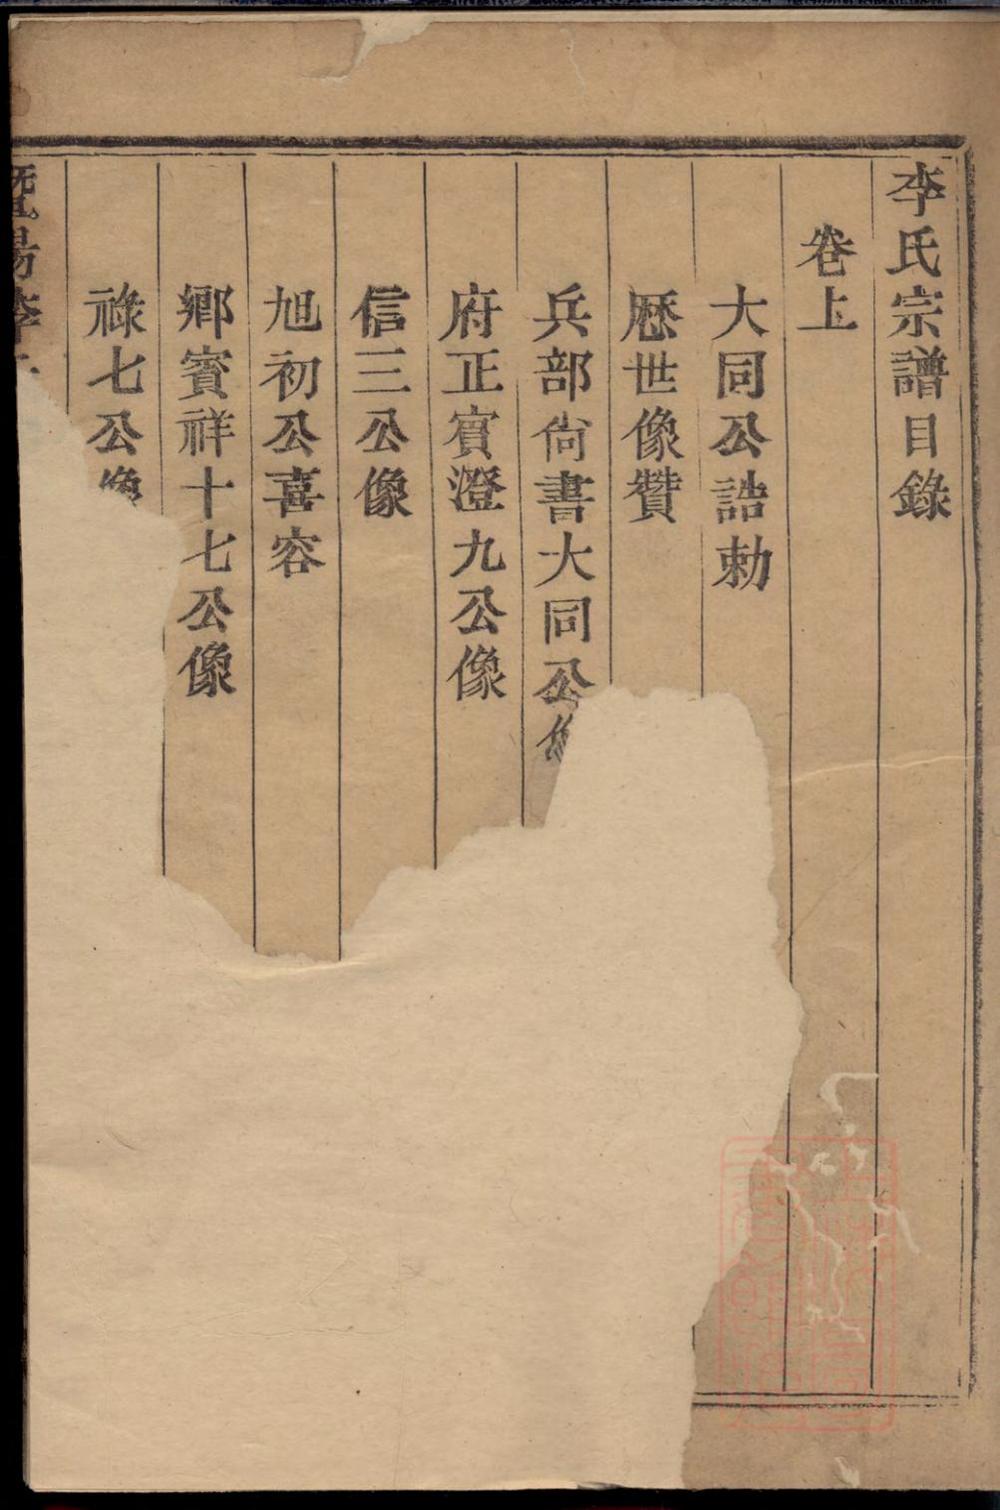 李氏宗譜目錄
卷上
大同公誥勅
歷世像贊
兵部尙書大同公像
府正賓澄九公像
信三公像
旭初公喜容
鄉賓祥十七公像
祿七公像
暨陽李